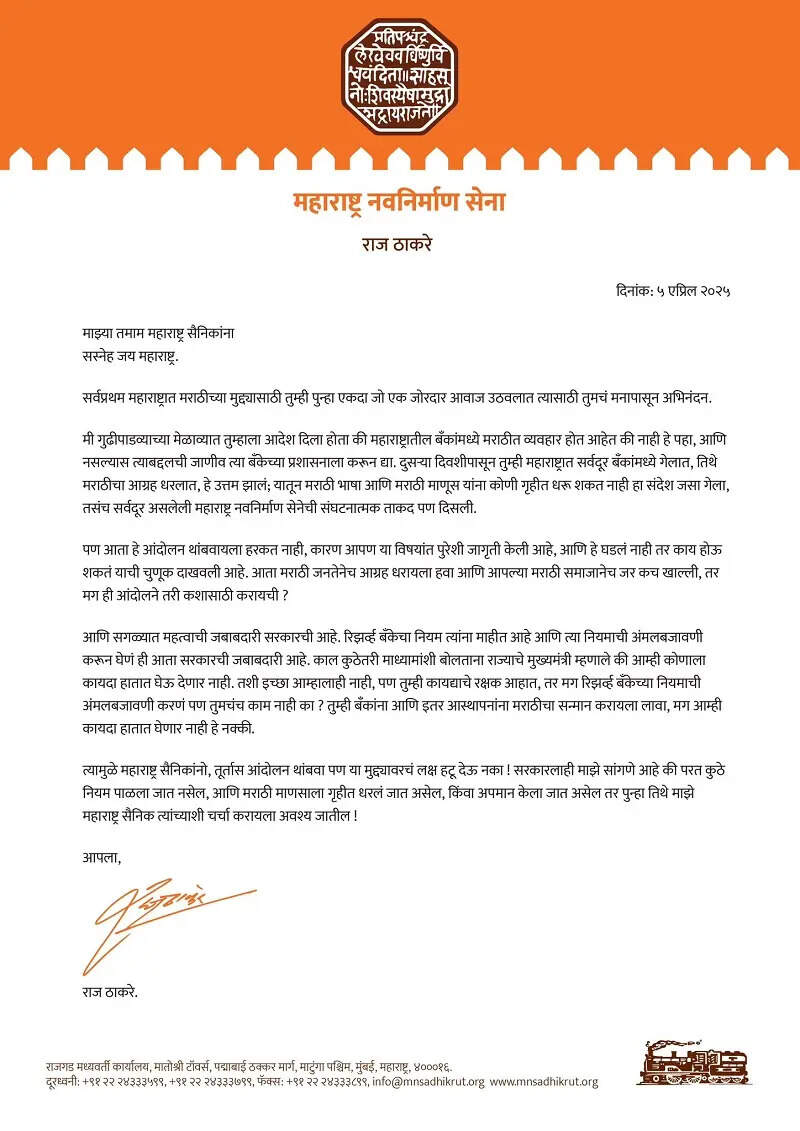 प्रतिपच्चंद्र
लेखेव वर्धिष्णुर्वि
श्ववंदिता॥ साहसू
नोःशिवस्यैषामुद्रा
भद्रायराजते॥
महाराष्ट्र नवनिर्माण सेना
राज ठाकरे
दिनांक: ५ एप्रिल २०२५
माझ्या तमाम महाराष्ट्र सैनिकांना
सस्नेह जय महाराष्ट्र.
सर्वप्रथम महाराष्ट्रात मराठीच्या मुद्द्यासाठी तुम्ही पुन्हा एकदा जो एक जोरदार आवाज उठवलात त्यासाठी तुमचं मनापासून अभिनंदन.
मी गुढीपाडव्याच्या मेळाव्यात तुम्हाला आदेश दिला होता की महाराष्ट्रातील बँकांमध्ये मराठीत व्यवहार होत आहेत की नाही हे पहा, आणि
नसल्यास त्याबद्दलची जाणीव त्या बँकेच्या प्रशासनाला करून द्या. दुसऱ्या दिवशीपासून तुम्ही महाराष्ट्रात सर्वदूर बँकांमध्ये गेलात, तिथे
मराठीचा आग्रह धरलात, हे उत्तम झालं; यातून मराठी भाषा आणि मराठी माणूस यांना कोणी गृहीत धरू शकत नाही हा संदेश जसा गेला,
तसंच सर्वदूर असलेली महाराष्ट्र नवनिर्माण सेनेची संघटनात्मक ताकद पण दिसली.
पण आता हे आंदोलन थांबवायला हरकत नाही, कारण आपण या विषयांत पुरेशी जागृती केली आहे, आणि हे घडलं नाही तर काय होऊ
शकतं याची चुणूक दाखवली आहे. आता मराठी जनतेनेच आग्रह धरायला हवा आणि आपल्या मराठी समाजानेच जर कच खाल्ली, तर
मग ही आंदोलने तरी कशासाठी करायची ?
आणि सगळ्यात महत्वाची जबाबदारी सरकारची आहे. रिझर्व्ह बँकेचा नियम त्यांना माहीत आहे आणि त्या नियमाची अंमलबजावणी
करून घेणं ही आता सरकारची जबाबदारी आहे. काल कुठेतरी माध्यामांशी बोलताना राज्याचे मुख्यमंत्री म्हणाले की आम्ही कोणाला
कायदा हातात घेऊ देणार नाही. तशी इच्छा आम्हालाही नाही, पण तुम्ही कायद्याचे रक्षक आहात, तर मग रिझर्व्ह बँकेच्या नियमाची
अंमलबजावणी करणं पण तुमचंच काम नाही का ? तुम्ही बँकांना आणि इतर आस्थापनांना मराठीचा सन्मान करायला लावा, मग आम्ही
कायदा हातात घेणार नाही हे नक्की.
त्यामुळे महाराष्ट्र सैनिकांनो, तूर्तास आंदोलन थांबवा पण या मुद्द्यावरचं लक्ष हटू देऊ नका ! सरकारलाही माझे सांगणे आहे की परत कुठे
नियम पाळला जात नसेल, आणि मराठी माणसाला गृहीत धरलं जात असेल, किंवा अपमान केला जात असेल तर पुन्हा तिथे माझे
महाराष्ट्र सैनिक त्यांच्याशी चर्चा करायला अवश्य जातील !
आपला,
राज ठाकरे.
राजगड मध्यवर्ती कार्यालय, मातोश्री टॉवर्स, पद्माबाई ठक्कर मार्ग, माटुंगा पश्चिम, मुंबई, महाराष्ट्र, ४०००१६.
दूरध्वनी: +९१ २२ २४३३३५९९, +९१ २२ २४३३३७९९, फॅक्स: +९१ २२ २४३३३८९९, info@mnsadhikrut.org www.mnsadhikrut.org